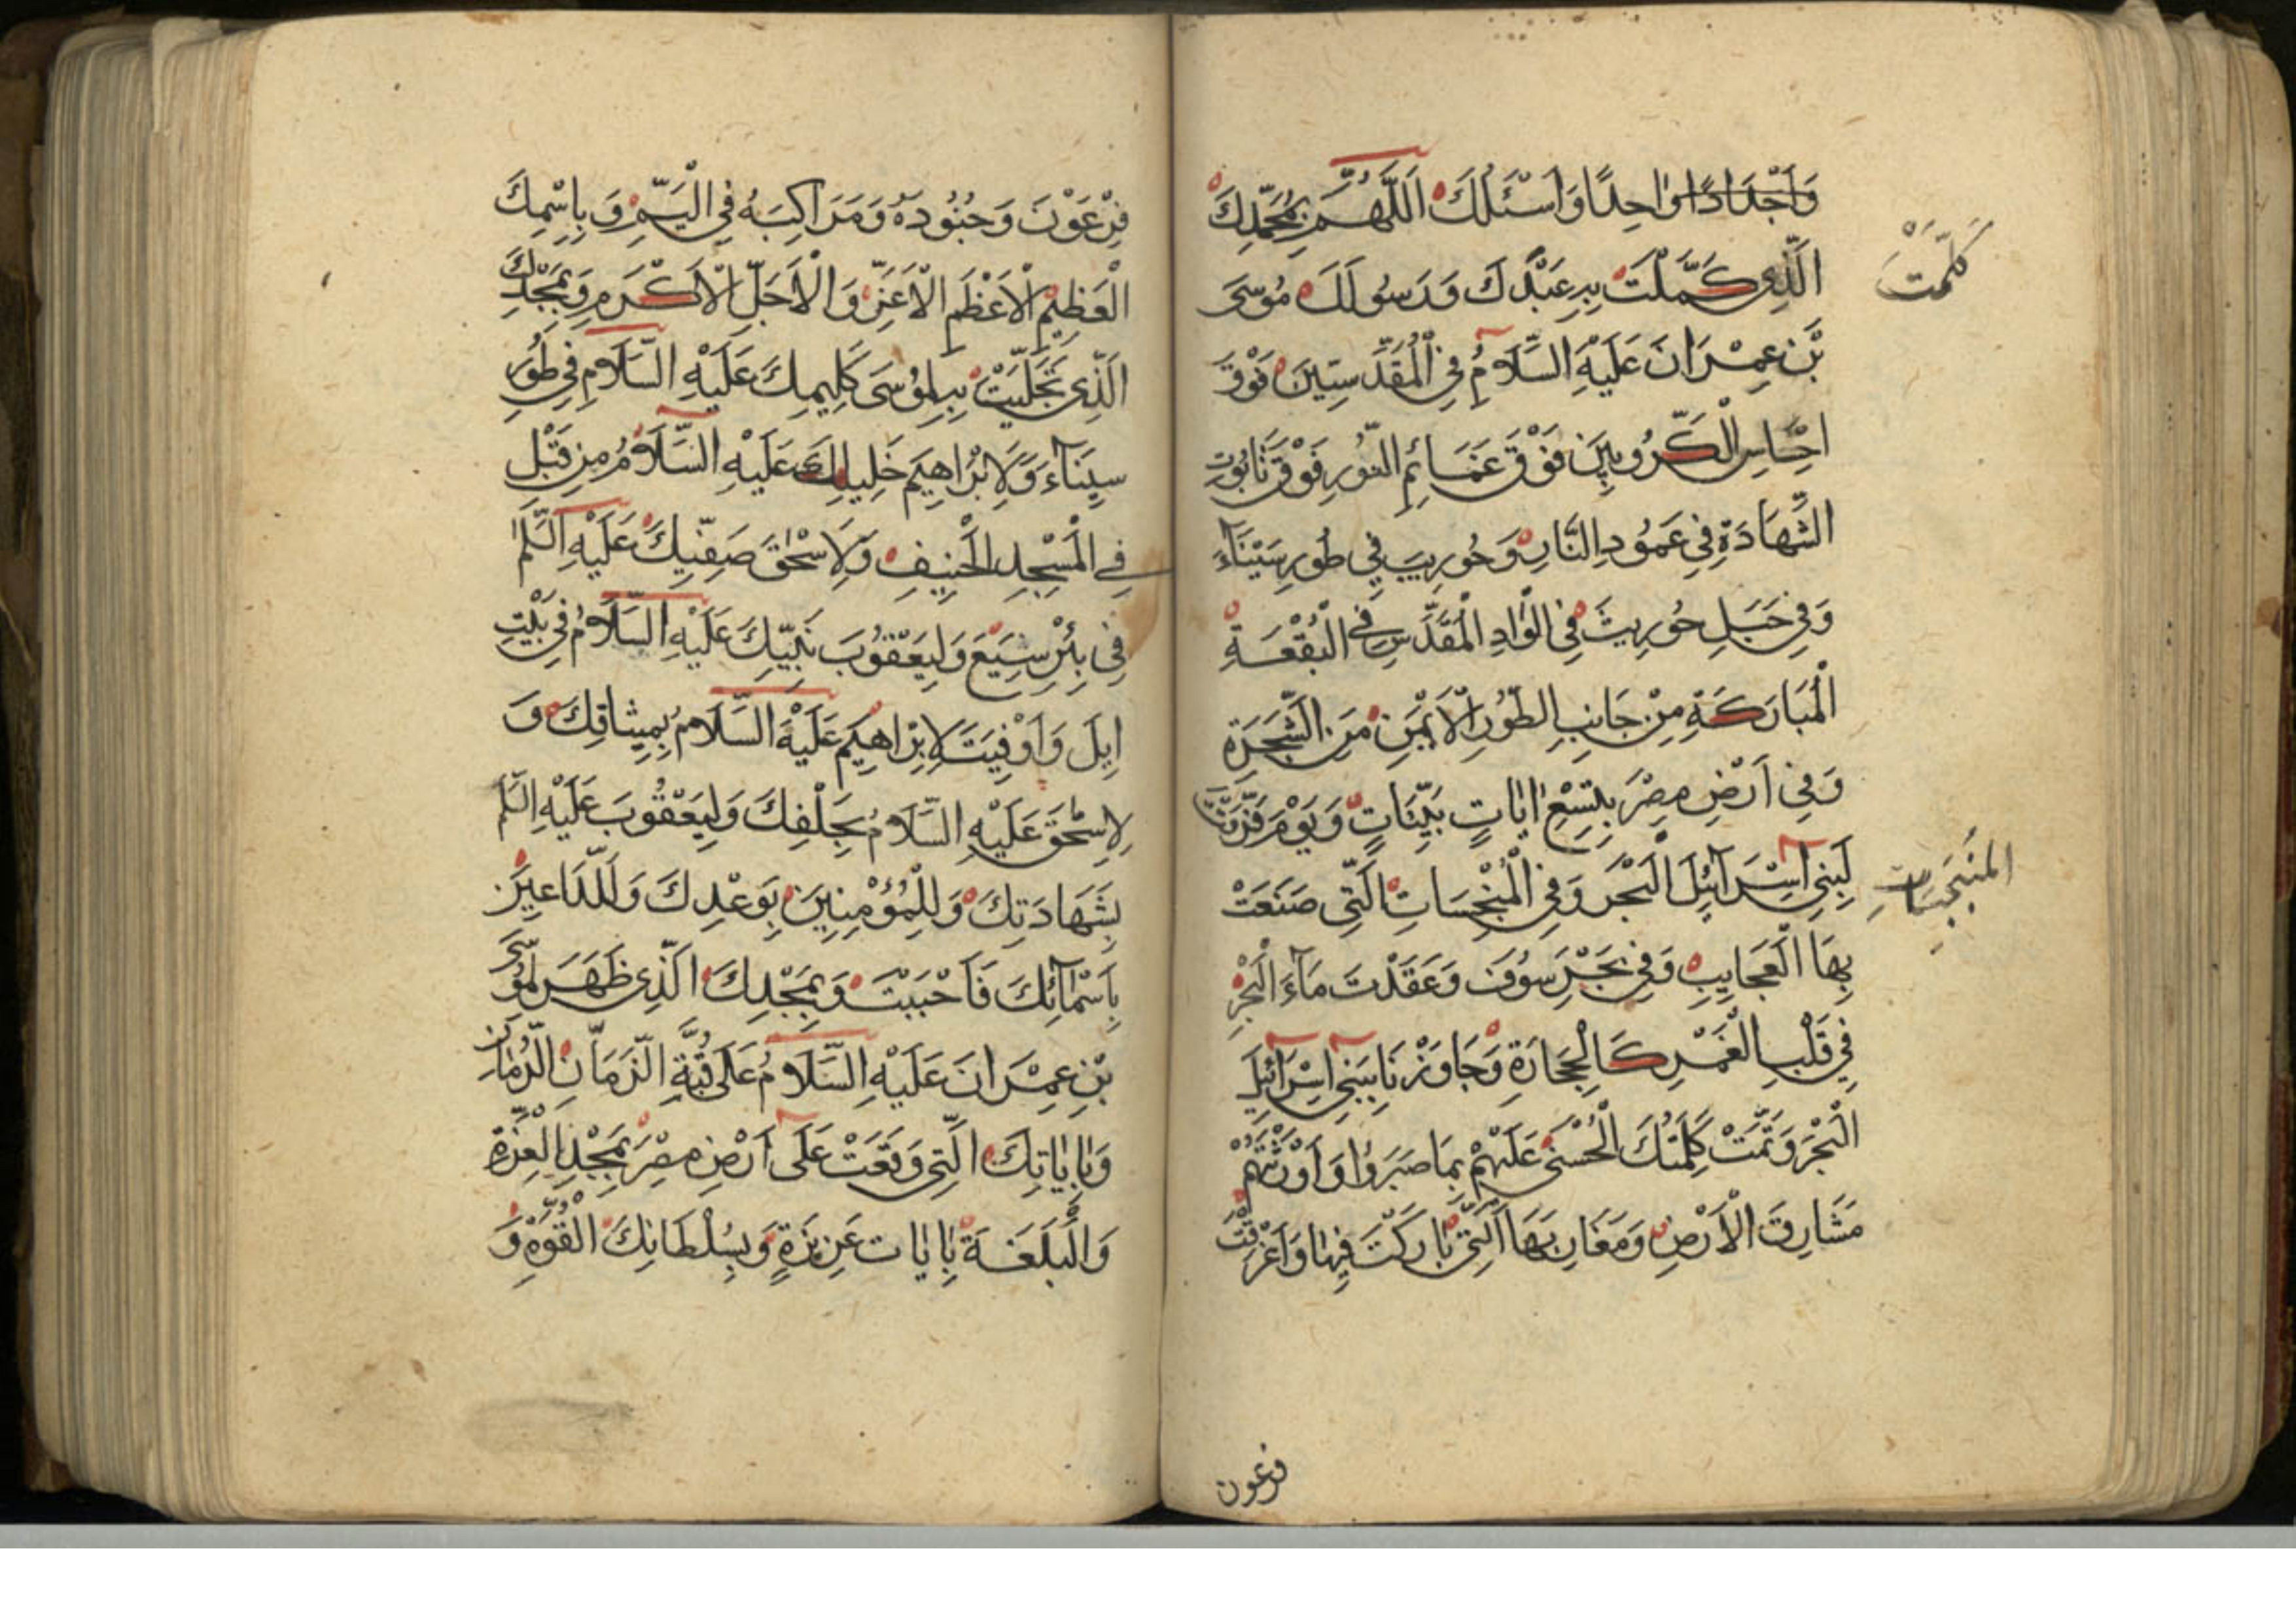 وَاَجْدَادًا وٰاحِدًا وَاَسْئَلُكَ اَللّٰهُمَّ بِمَجْدِكَ
الَّذِي كَمَّلْتَ بِهِ عَبْدَكَ وَرَسُولَكَ مُوسَى
كَلَّمْتَ
بْنَ عِمْرَانَ عَلَيْهِ السَّلَامُ فِي الْمُقَدَّسِيّنَ فَوْقَ
اِحْسَاسِ الْكَرُّوبِينَ فَوْقَ غَمَائِمِ النُّورِ فَوْقَ تَابُوتِ
الشَّهَادَةِ فِي عَمُودِ النَّارِ وَحُورِيبَ فِي طُورِ سَيْنَآءَ
وَفِي جَبَلِ حُورِيثَ فِي الْوَادِ الْمُقَدَّسِ فِي الْبُقْعَةِ
الْمُبَارَكَةِ مِنْ جَانِبِ الطُّورِ الْاَيْمَنِ مِنَ الشَّجَرَةِ
وَفِي اَرْضِ مِصْرَ بِتِسْعِ اٰيَاتٍ بَيِّنَاتٍ وَيَوْمَ فَرَقْتَ
لِبَنِي اِسْرَآئِلَ الْبَحْرَ وَفِي الْمُنْبَجِسَاتِ الَّتِي صَنَعْتَ
المُنْبَجِسَاتِ
بِهَا الْعَجَايِبِ وَفِي بَحْرِ سُوْفَ وَعَقَدْتَ مَآءَ الْبَحْرِ
فِي قَلْبِ الْغَمْرِ كَالْحِجَارَةِ وَجَاوَزْتَ بِبَنِي اِسْرَآئِيلَ
الْبَحْرَ وَتَمَّتْ كَلِمَتُكَ الْحُسْنٰى عَلَيْهِمْ بِمَا صَبَرُوا وَاَوْرَثْتَهُمْ
مَشَارِقَ الْاَرْضِ وَمَغَارِبَهَا الَّتِي بَارَكْتَ فِيهَا وَاَغْرَقْتَ
فرعون
فِرْعَوْنَ وَجُنُودَهُ وَمَرَاكِبَهُ فِي الْيَمِّ وَبِاسْمِكَ
الْعَظِيمِ الْاَعْظَمِ الْاَعَزِّ وَالْاَجَلِّ الْاَكْرَمِ وَبِمَجْدِكَ
الَّذِي تَجَلَّيْتَ بِهِ لِمُوسَى كَلِيمِكَ عَلَيْهِ السَّلَامُ فِي طُورِ
سِينَآءَ وَلِاِبْرَاهِيمَ خَلِيلِكَ عَلَيْهِ السَّلَامُ مِنْ قَبْلِ
فِي الْمَسْجِدِ الْحَنِيفِ وَلِاِسْحٰقَ صَفِيِّكَ عَلَيْهِ السَّلَمُ
فِي بِئْرِ شِيَعٍ وَلِيَعْقُوبَ نَبِيِّكَ عَلَيْهِ السَّلَامُ فِي بَيْتِ
اِيلَ وَاَوْفَيْتَ لِاِبْرَاهِيمَ عَلَيْهِ السَّلَامُ بِمِيثَاقِكَ وَ
لِاِسْحٰقَ عَلَيْهِ السَّلَامُ بِحَلْفِكَ وَلِيَعْقُوبَ عَلَيْهِ السَّلَمُ
بِشَهَادَتِكَ وَلِلْمُؤْمِنِينَ بِوَعْدِكَ وَلِلدَّاعِينَ
بِاَسْمَآئِكَ فَاَجَبْتَ وَبِمَجْدِكَ الَّذِي ظَهَرَ لِمُوسَى
بْنِ عِمْرَانَ عَلَيْهِ السَّلَامُ عَلٰى قُبَّةِ الزَّمَانِ الرُّمَّانِ
وَبِاٰيَاتِكَ الَّتِي وَقَعَتْ عَلٰى اَرْضِ مِصْرَ بِمَجْدِ الْعِزَّةِ
وَالْبَلَغَةِ بِاٰيَاتٍ عَزِيزَةٍ وَبِسُلْطَانِكَ الْقُوَّةِ وَ